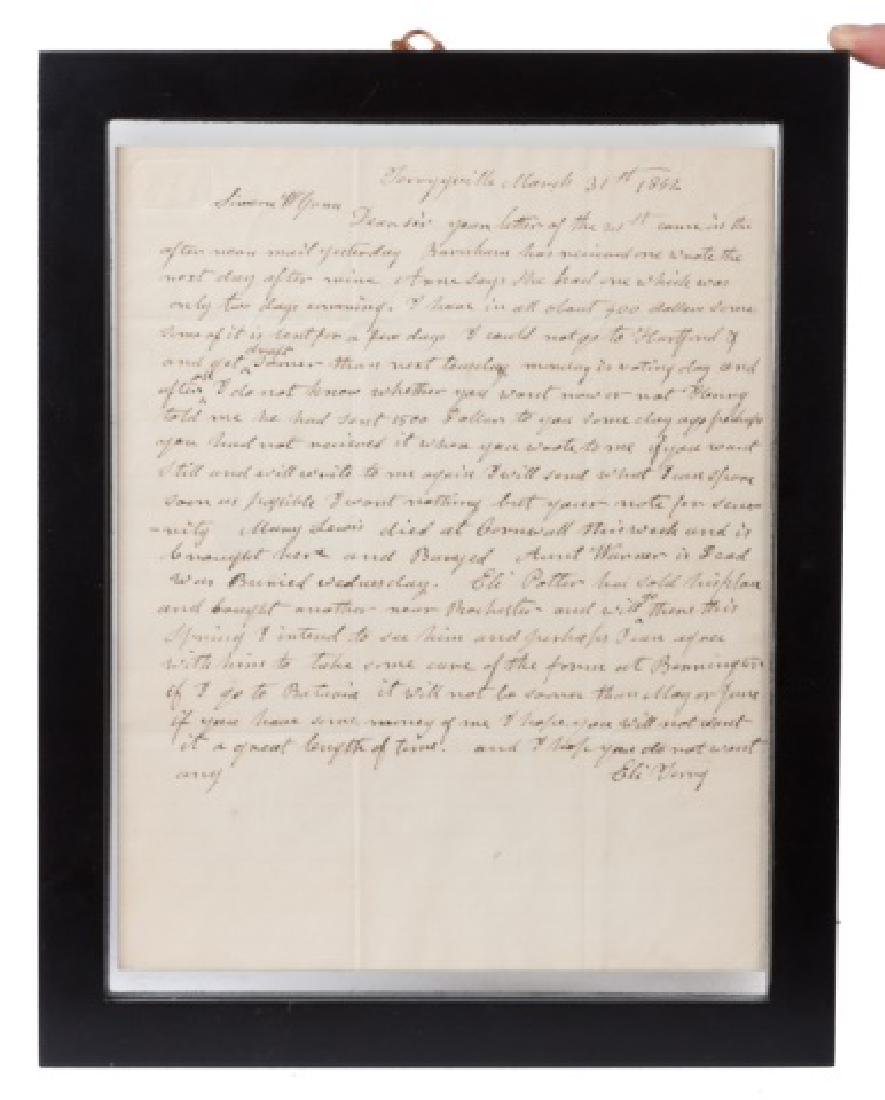 Terryville March 31st 1842
Simeon
Dear sir your letter of the 21st came in the
after noon mail yesterday Burnham has recieved one wrote the
next day after mine Anne says she had one which was
only two days comming. I have in all about 900 dollars some
some of it is lent for a few days I could not go to Hartford
and get draft sooner than next tuesday monday is voting day and
after all I do not know whether you want now or not Henry
told me he had sent 1500 Dollars to you some days ago perhaps
you had not recieved it when you wrote to me if you want
still and will write to me again I will send what I can spare
soon as posible I want nothing but your note for secu
-rity Mary Lewis died at Cornwall this week and is
brought here and Buryed Aunt Warner is Dead
was Buried wednesday. Eli Potter has sold his place
and bought another near Rochester and will there this
spring I intend to see him and perhaps I can agree
with him to take some care of the farm at Bennington
if I go to Batavia it will not be sooner than May or June
if you have some money of me I hope you will not want
it a great length of time. and I hope you do not want
any Eli Terry